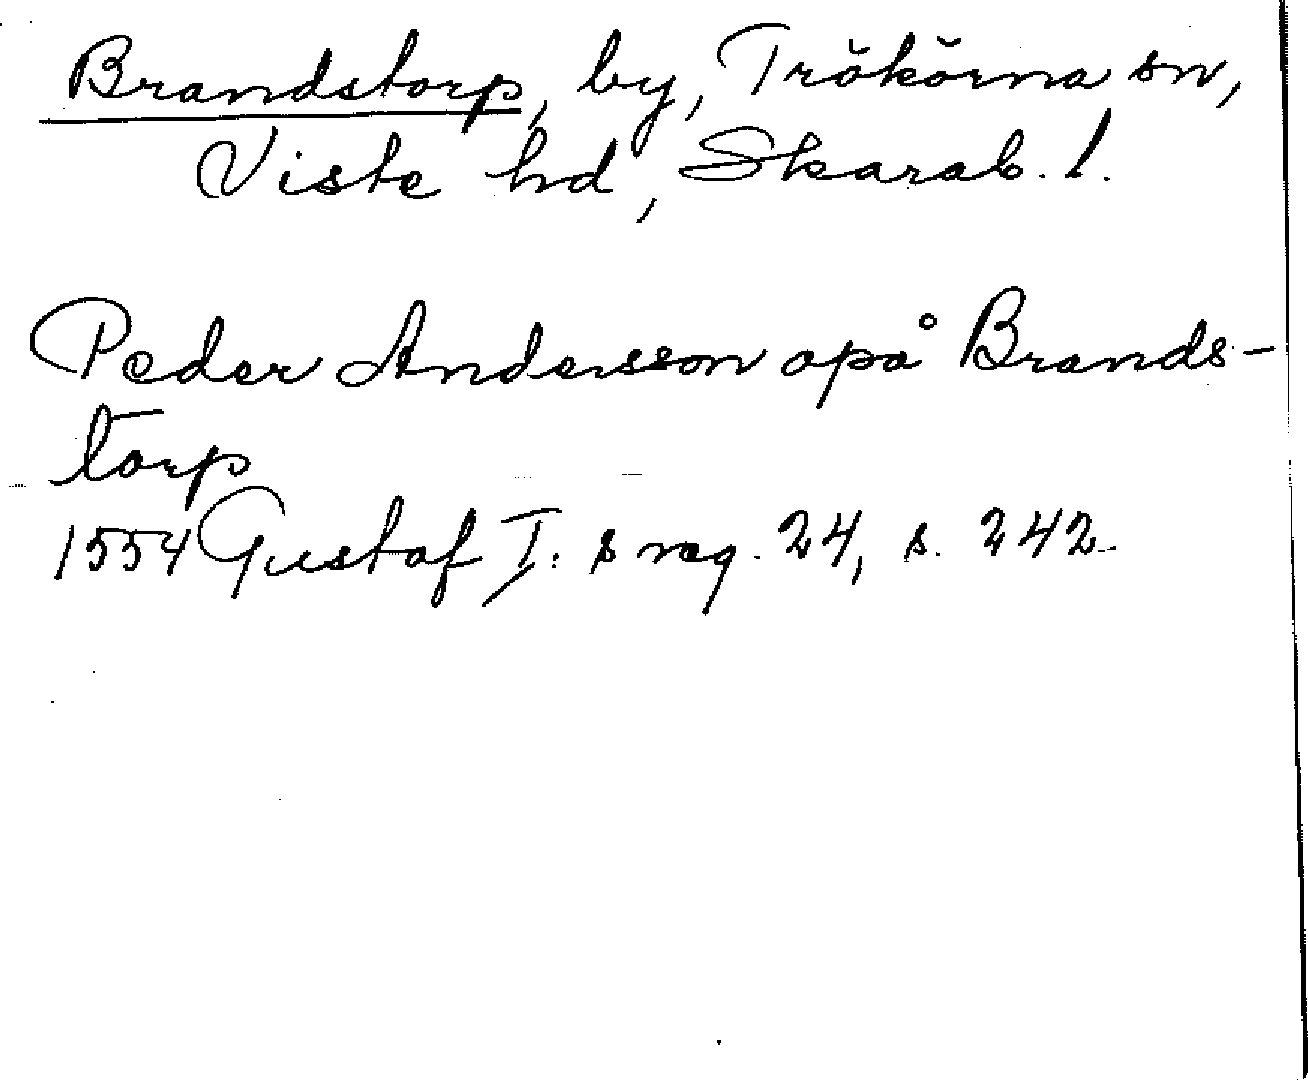 Brandstorp, by, Trökörna sn,
Viste hd, Skarab. l.
Peder Andersson opå Brands-
torp
1554 Gustaf I:s reg. 24, s. 242.